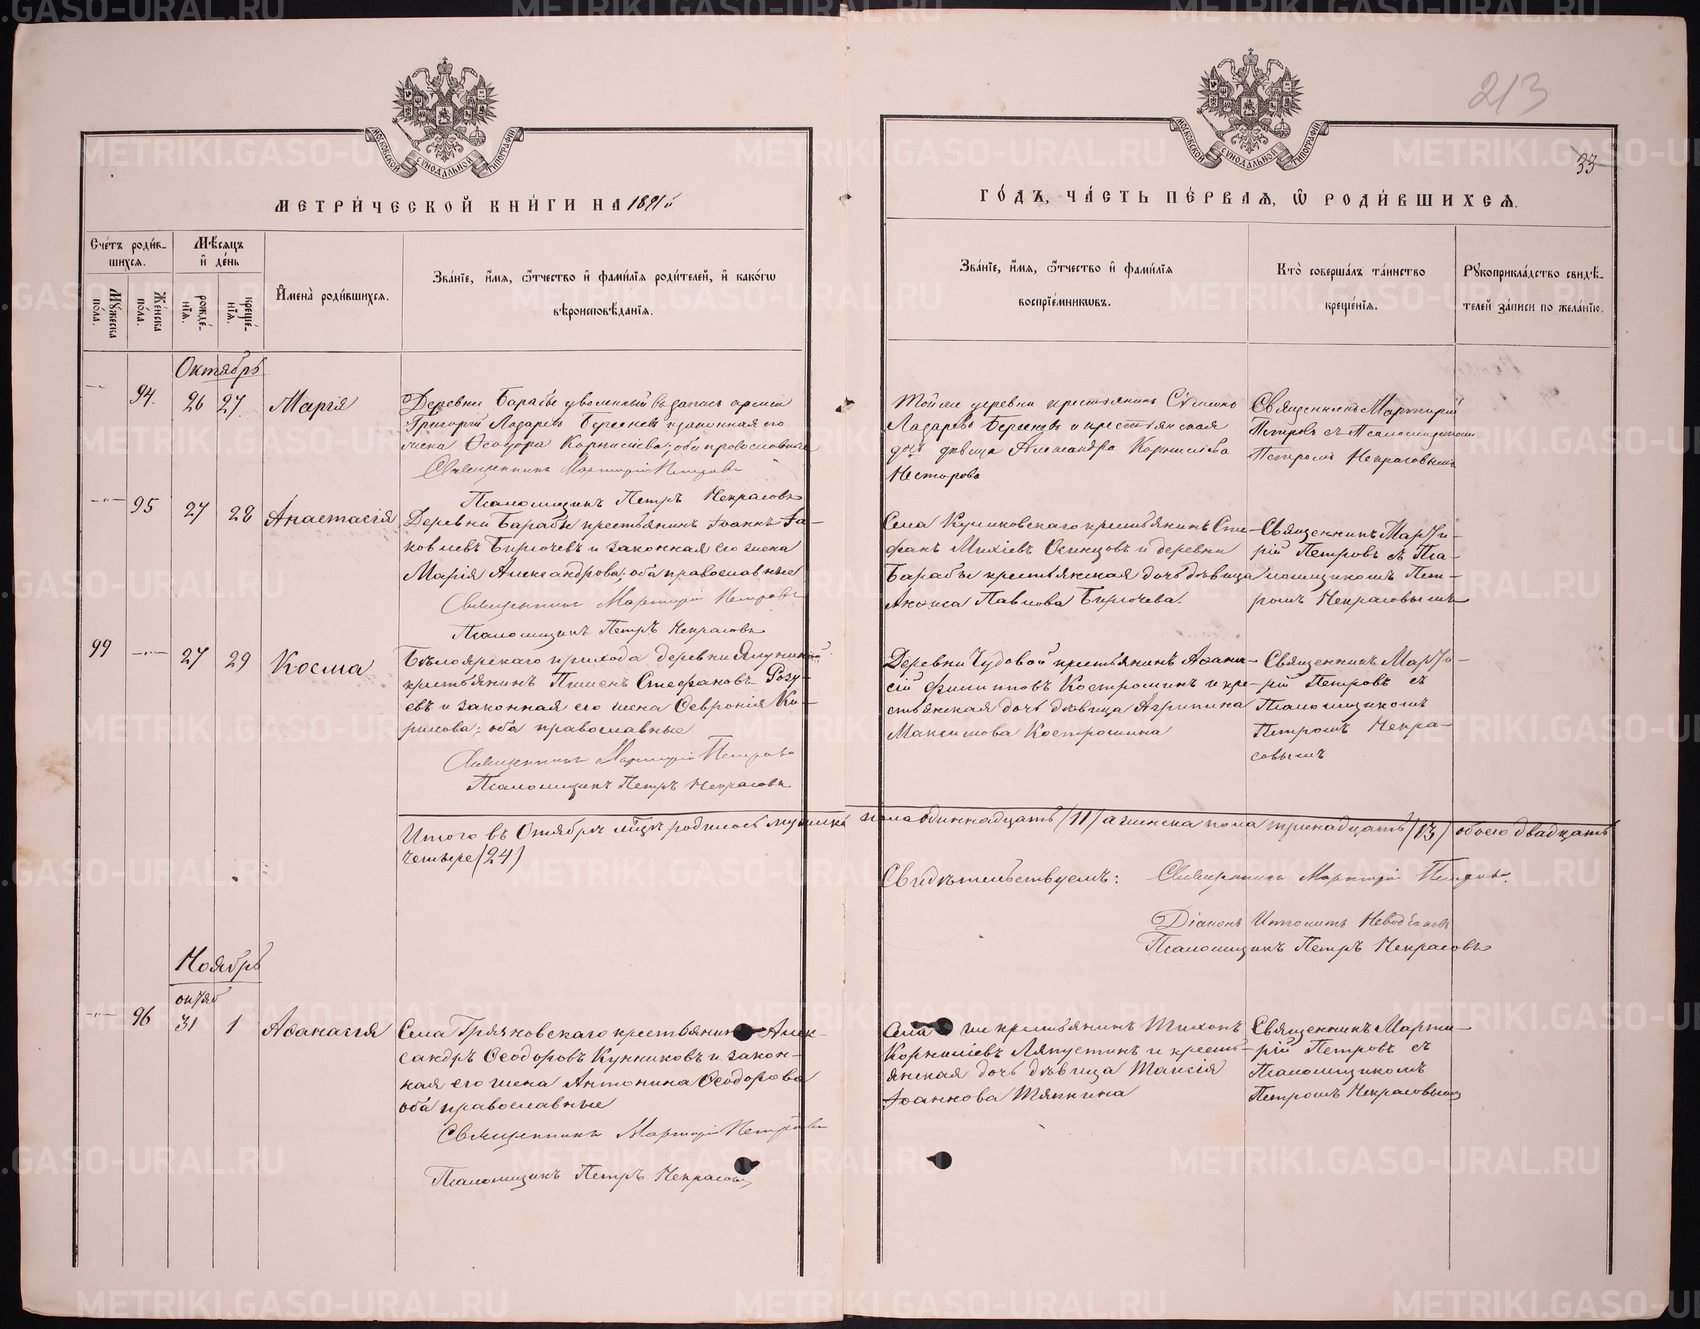 213
33
МОСКОВСКОЙ СѴНОДАЛЬНОЙ ТИПОГРАФІИ
МОСКОВСКОЙ СѴНОДАЛЬНОЙ ТИПОГРАФІИ
МЕТРИ́ЧЕСКОЙ КНИ́ГИ НА 1891й
ГО́ДЪ, ЧА́СТЬ ПЕ́РВАЯ, Ѽ РОДИ́ВШИХСЯ.
Сче́тъ роди́в-
шихся.
Мѣ́сяцъ
и҆ де́нь
Му́жеска по́ла.
Же́нска по́ла.
рожде́-нїя.
креще́-нїя.
И҆мена̀ роди́вшихся.
Зва́нїе, и҆́мя, ѻ҆́тчество и҆ фами́лїя роди́телей, и҆ како́гѡ
вѣроисповѣ́данїя.
Зва́нїе, и҆́мя, ѻ҆́тчество и҆ фами́лїя
воспрїе́мниковъ.
Кто̀ соверша́лъ та́инство
креще́нїя.
Рукоприкла́дство свидѣ́-
телей за́писи по жела́нїю.
Октябрь
94.
26 27.
Марія
Деревни Барабы уволенный въ запасъ арміи
Григорій Лазаревъ и законная его
жена Ѳеодора Корнилiева; оба православные
Священникъ Мартирій Петровъ
Псаломщикъ Петръ Некрасовъ
Той же деревни крестьянинъ
Лазаревъ и крестьянская
дочь дѣвица Александра Корнилiева
Нестерова
Священникъ Мартирій
Петровъ съ Псаломщикомъ
Петромъ Некрасовымъ
95
27 28
Анастасія
Деревни Барабы крестьянинъ Іоаннъ Іа-
ковлевъ Бирючевъ и законная его жена
Марія Александрова; оба православные
Священникъ Мартирій Петровъ
Псаломщикъ Петръ Некрасовъ
Села Куликовскаго крестьянинъ Сте-
фанъ Осинцовъ и деревни
Барабы крестьянская дочь дѣвица
Павлова Бирючева.
Священникъ Марти-
рій Петровъ съ Пса-
ломщикомъ Пет-
ромъ Некрасовымъ
99
27 29
Косма
Бѣлоярскаго прихода деревни
крестьянинъ Пименъ Стефановъ
и законная его жена Ѳевронія Ки-
рилова; оба православные
Священникъ Мартирій Петровъ
Псаломщикъ Петръ Некрасовъ
Деревни Чудовой крестьянинъ Аѳана-
сій Филипповъ Костромин и кре-
стьянская дочь дѣвица Агрипина
Максимова Костромина
Священникъ Марти-
рій Петровъ съ
Псаломщикомъ
Петромъ Некра-
совымъ
Итого въ Октябрѣ м҃цѣ родилось мужска пола одиннадцать (11) а женска пола тринадцать (13) обоего двадцать
четыре (24)
Свидѣтельствуемъ: Священникъ Мартирій Петровъ.
Діаконъ
Псаломщикъ Петръ Некрасовъ
Ноябрь
октяб
96
31 1
Аѳанасія
Села Грязновскаго крестьянинъ Алек-
сандръ Ѳеодоровъ и закон-
ная его жена Антонина Ѳеодорова
оба православные
Священникъ Мартирій Петровъ
Псаломщикъ Петръ Некрасовъ
Села же крестьянинъ Тихонъ
Корниліевъ Ляпустинъ и кресть-
янская дочь дѣвица Таисія
Іоаннова Тяпкина
Священникъ Марти-
рій Петровъ съ
Псаломщикомъ
Петромъ Некрасовымъ
METRIKI.GASO-URAL.RU